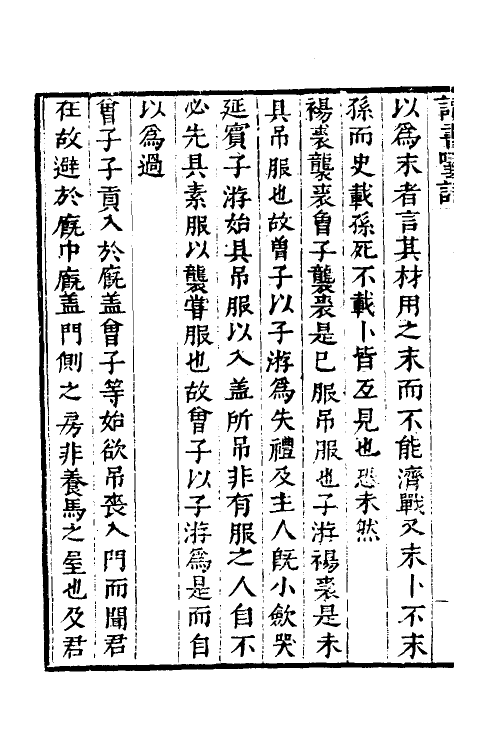 以爲末者言其材用之末而不能濟戰又末卜不末
孫而史載孫死不載卜皆互見也恐未然
裼裘襲裘曾子襲裘是已服吊服也子游裼裘是未
具吊服也故曾子以子游爲失禮及主人旣小歛哭
延賓子游始具吊服以入盖所吊非有服之人自不
必先具素服以襲甞服也故曾子以子游爲是而自
以爲過
曾子子貢入於廐盖曾子等始欲吊喪入門而聞君
在故避於廐中廐盖門側之房非養馬之屋也及君